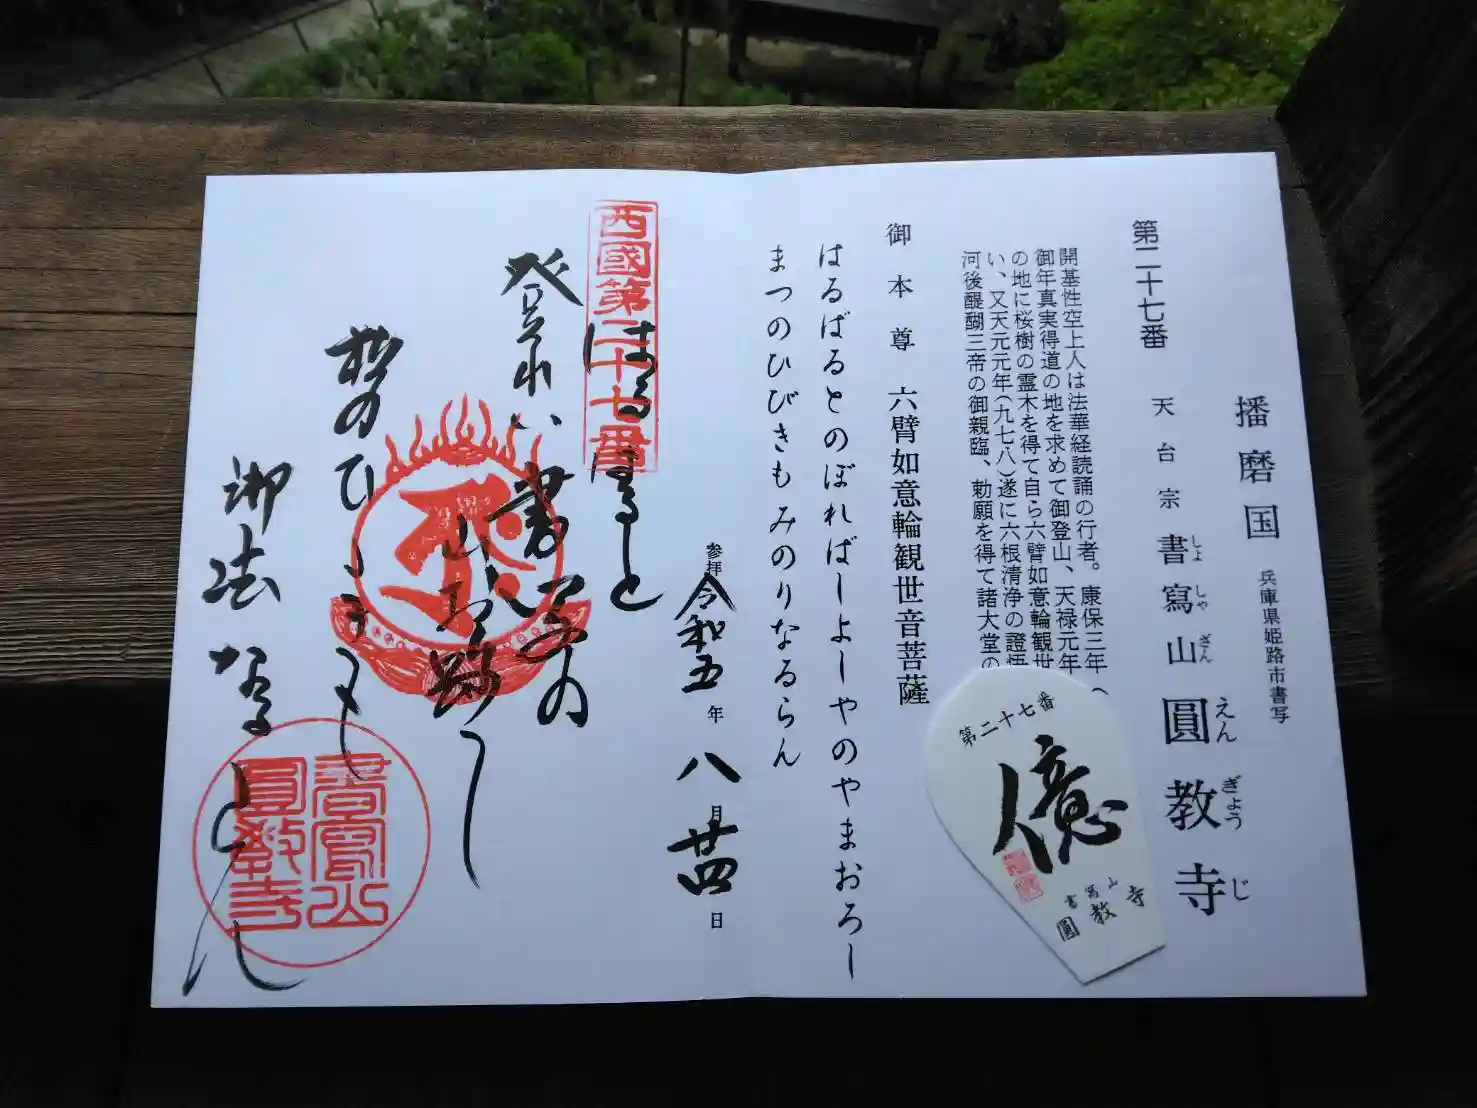 播磨国 兵庫県姫路市書写
第二十七番 天台宗 書寫山 圓教寺
しょ しゃ ざん えん ぎょう じ
開基性空上人は法華経読誦の行者。康保三年(
御年真実得道の地を求めて御登山、天禄元年
の地に桜樹の霊木を得て自ら六臂如意輪観世
い、又天元元年(九七八)遂に六根清浄の證悟
河後醍醐三帝の御親臨、勅願を得て諸大堂の
御本尊 六臂如意輪観世音菩薩
はるばるとのぼればしよしやのやまおろし
まつのひびきもみのりなるらん
参拝 令和五年八月廿四日
第二十七番
億
書寫山
圓教寺
西國第二十七番
はるばると
登れば書写の
山お路し
松のひゞきも
御法なるらん
書寫山
圓教寺